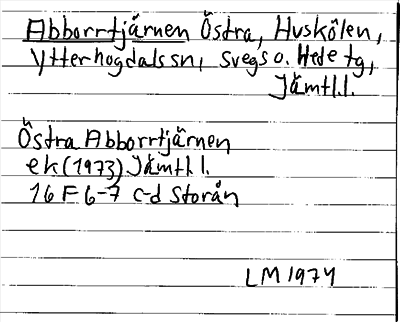 Abborrtjärnen Östra, Huskölen,
Ytterhogdals sn, Svegs o. Hede tg,
Jämtl.l.
Östra Abborrtjärnen
ek (1973) Jämtl.l.
16 F 6-7 c-d Storån
LM 1974